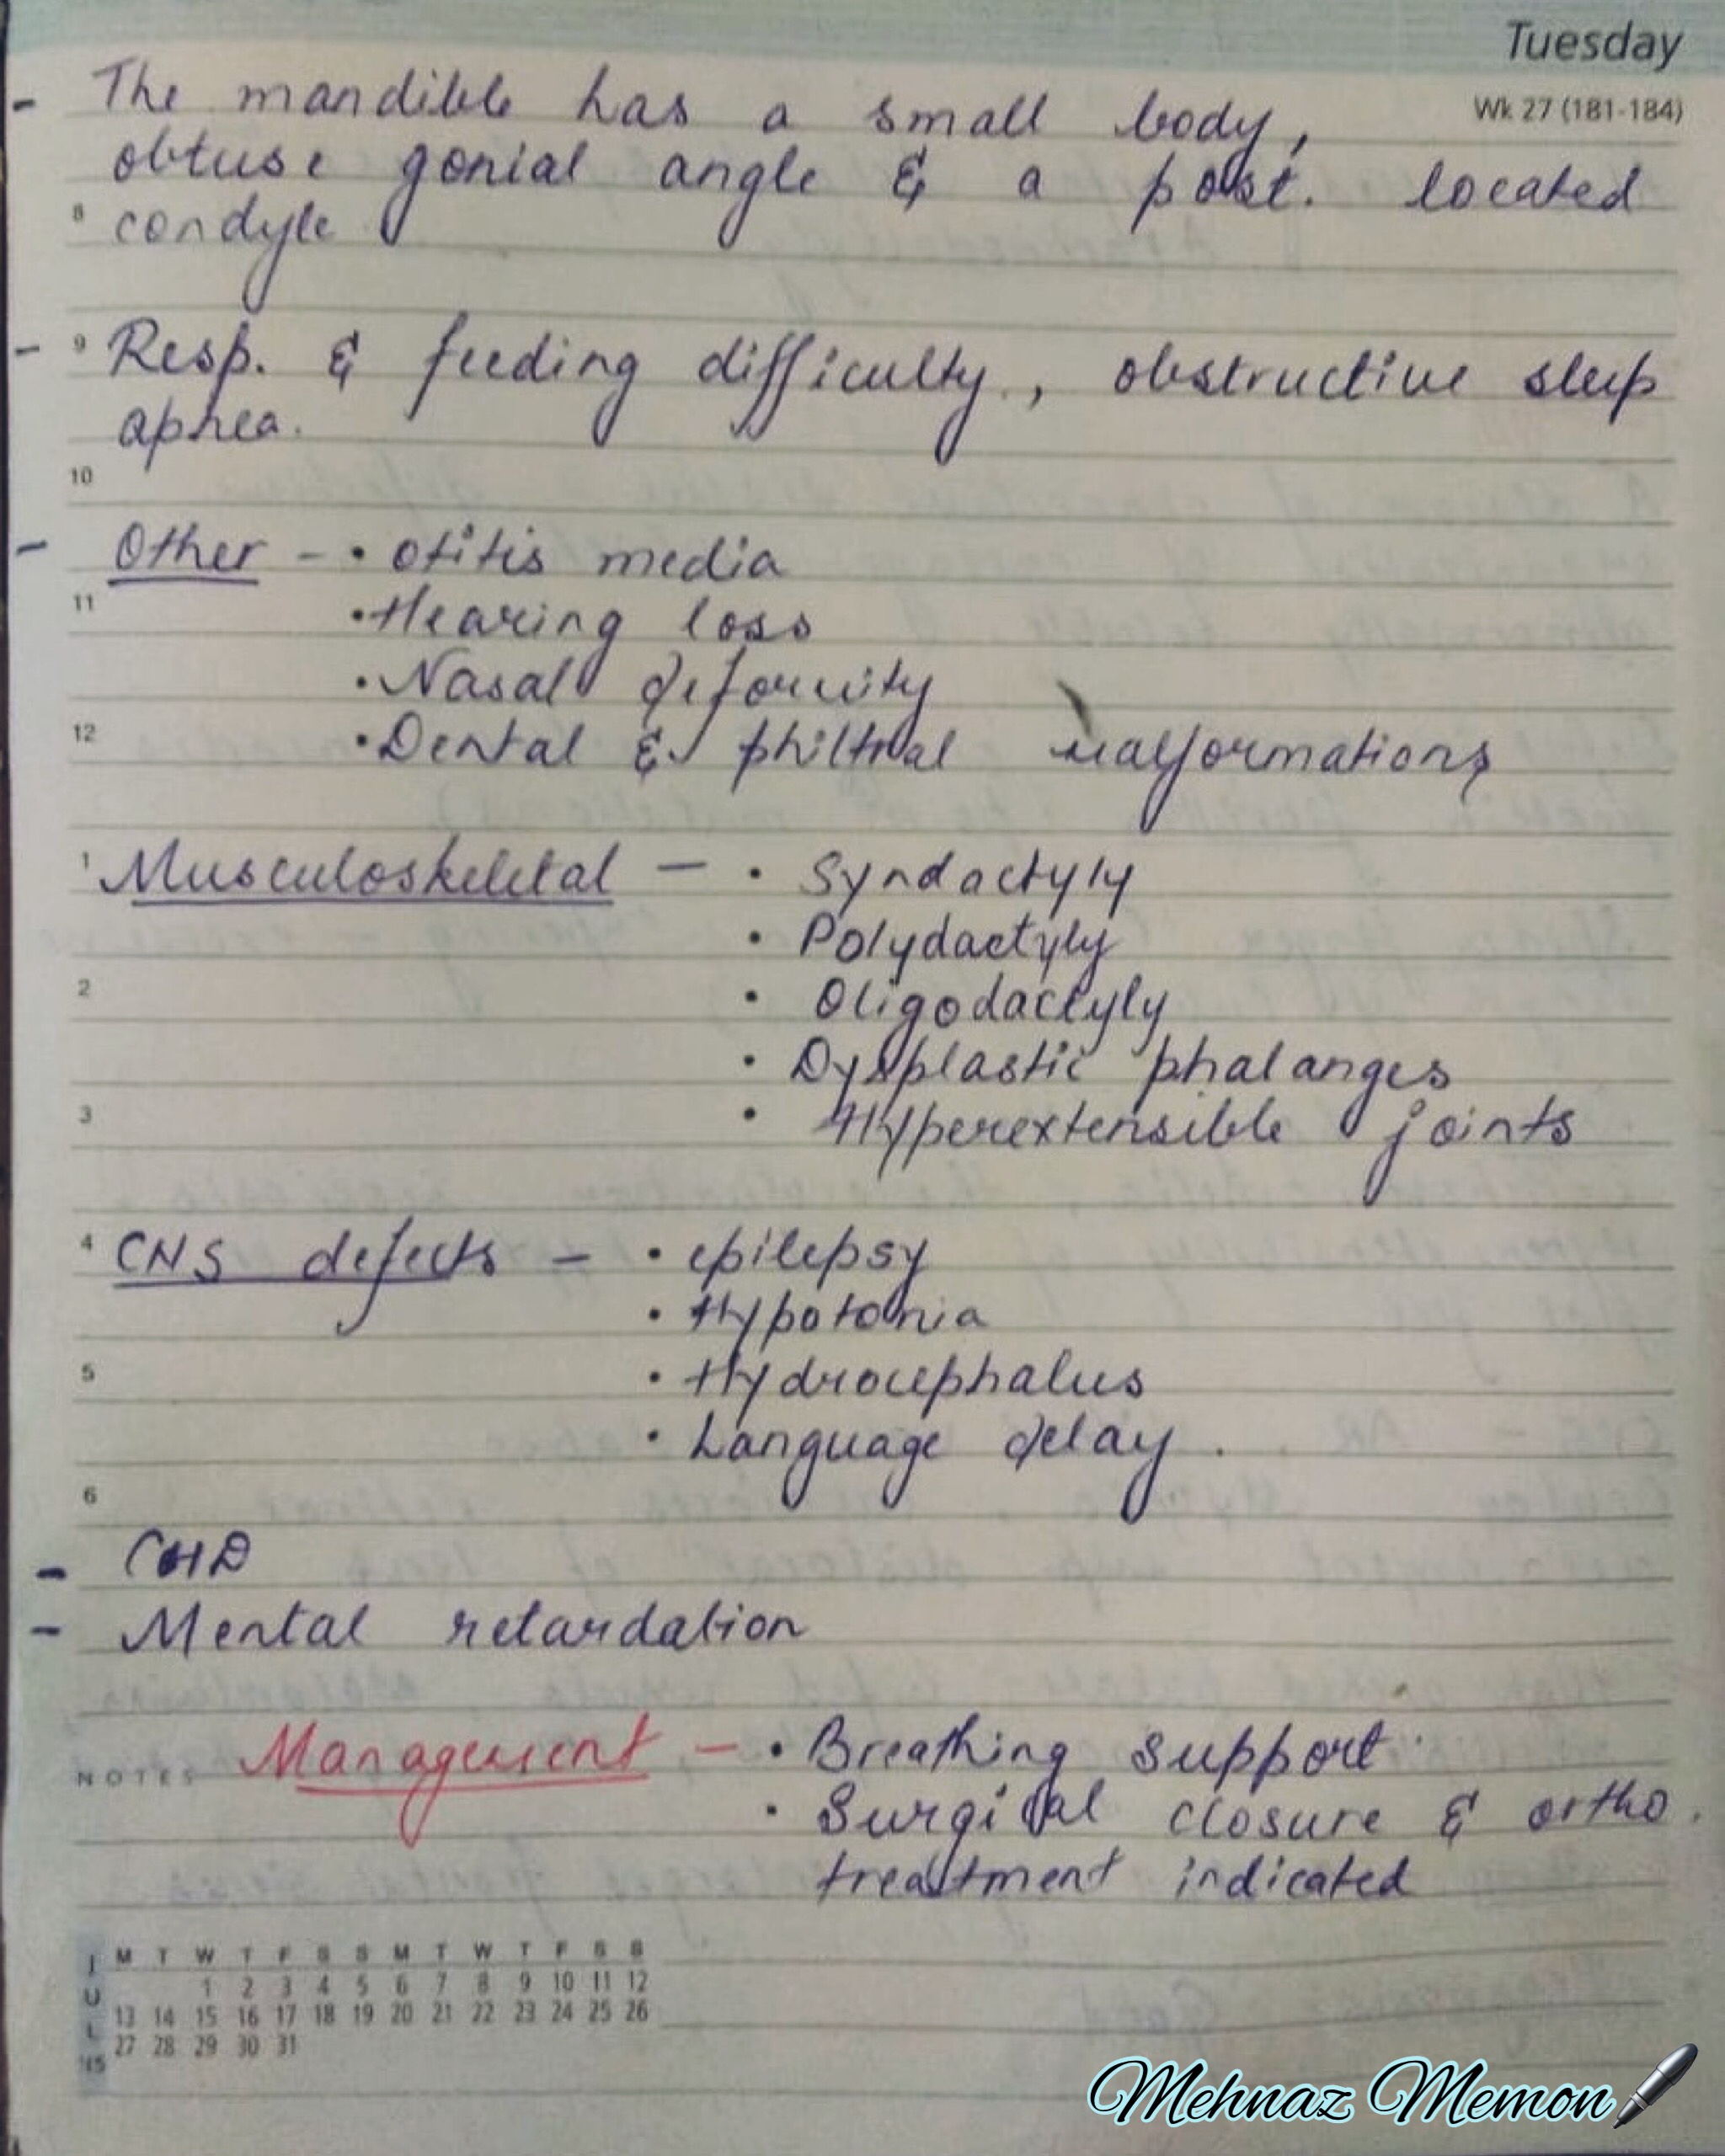 Tuesday
Wk 27 (181-184)
- The mandible has a small body,
obtuse gonial angle & a post. located
8 condyle
- 9 Resp. & feeding difficulty, obstructive sleep
apnea.
10
- Other - • otitis media
11
• Hearing loss
• Nasal deformity
12 • Dental & philtral malformations
1 Musculoskeletal - • Syndactyly
• Polydactyly
2 • Oligodactyly
• Dysplastic phalanges
3 • Hyperextensible joints
4 CNS defects - • epilepsy
• Hypotonia
5 • Hydrocephalus
• Language delay.
6
- CHD
- Mental retardation
NOTES Management - • Breathing support
• Surgical closure & ortho.
treatment indicated
JUL
M T W T F S S M T W T F S S
1 2 3 4 5 6 7 8 9 10 11 12
13 14 15 16 17 18 19 20 21 22 23 24 25 26
27 28 29 30 31
Mehnaz Memon